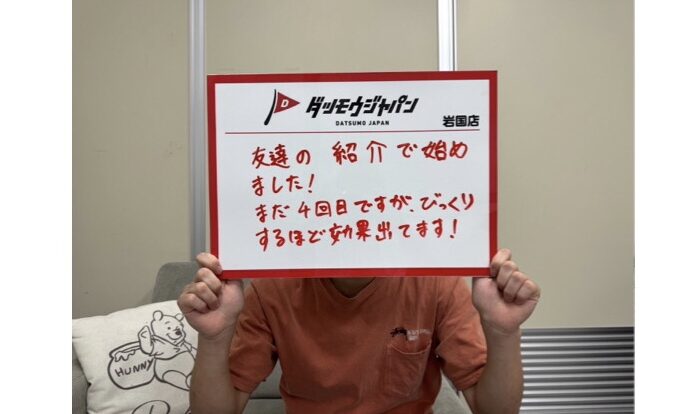 D
ダツモウジャパン
DATSUMO JAPAN
岩国店
友達の 紹介で始め
ました!
まだ4回目ですが、びっくり
するほど効果出てます!
HUNNY